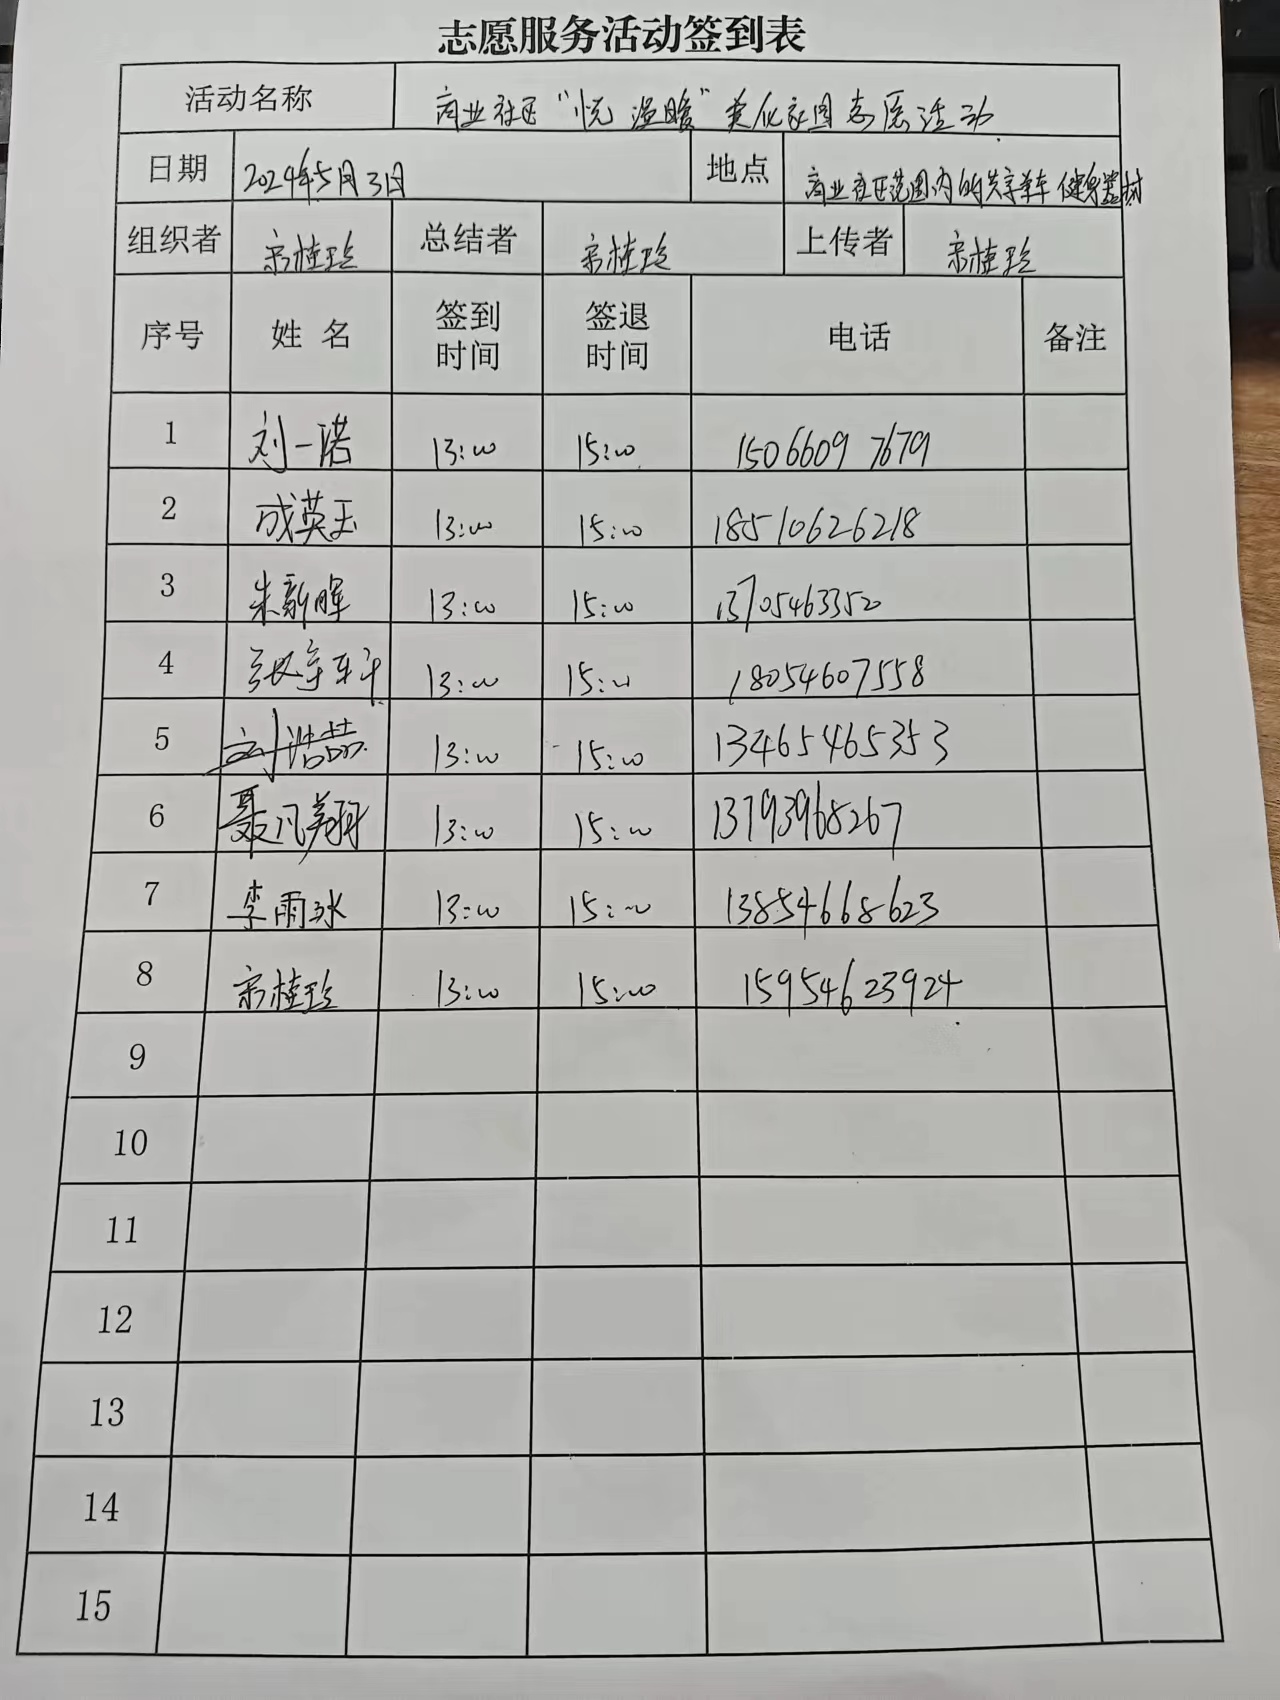 志愿服务活动签到表
活动名称 商业社区“悦 温暖”美化家园志愿活动
日期 2024年5月3日 地点 商业社区范围内的共享单车 健身器材
组织者 宋桂珍 总结者 宋桂珍 上传者 宋桂珍
序号 姓 名 签到时间 签退时间 电话 备注
1 刘一诺 13:00 15:00 15066097679
2 成英玉 13:00 15:00 18510626218
3 朱新晖 13:00 15:00 13705463352
4 13:00 15:00 18054607558
5 刘浩喆 13:00 15:00 13465465353
6 聂凡翔 13:00 15:00 13793968267
7 李雨冰 13:00 15:00 13854668623
8 宋桂珍 13:00 15:00 15954623924
9
10
11
12
13
14
15